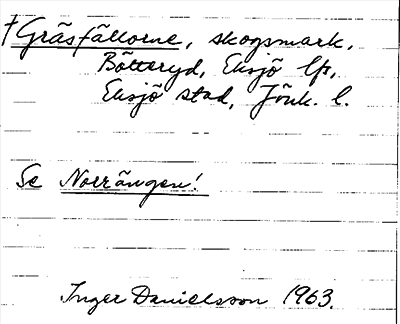 †Gräsfällorne, skogsmark,
Bötteryd, Eksjö lfs,
Eksjö stad, Jönk. l.
Se Norrängen!
Inger Danielsson 1963.